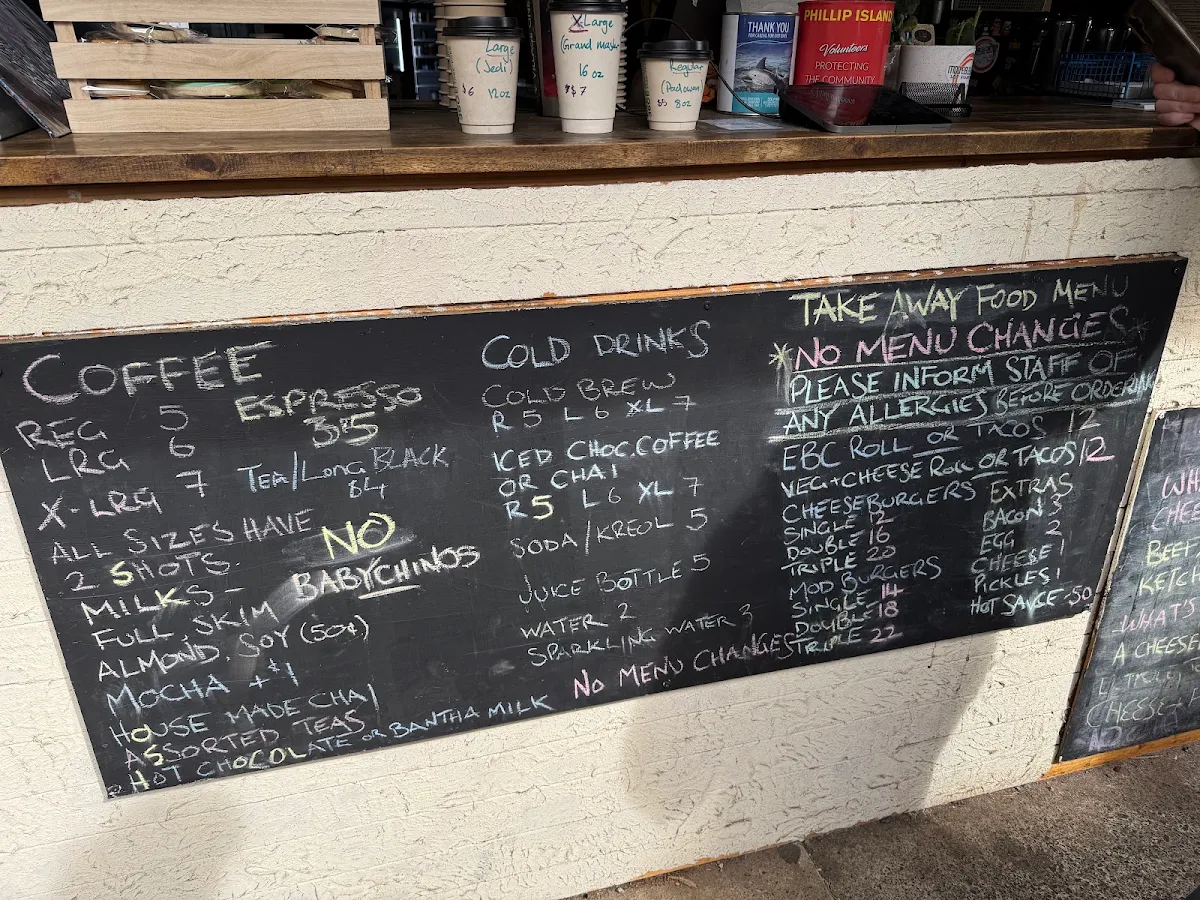 Large
(Jedi)
$6 12oz
X-Large
(Grand master
16 oz
$7
Regular
(Padawan
$5 8oz
THANK YOU
PHILLIP ISLAND
Volunteers
PROTECTING
THE COMMUNITY
COFFEE
REG 5
LRG 6
X-LRG 7
ESPRESSO
3.5
TEA/LONG BLACK
$4
ALL SIZES HAVE
2 SHOTS.
NO
BABYCHINOS
MILKS-
FULL, SKIM
ALMOND, SOY (50¢)
MOCHA +$1
HOUSE MADE CHAI
ASSORTED TEAS
HOT CHOCOLATE OR BANTHA MILK
COLD DRINKS
COLD BREW
R 5 L 6 XL 7
ICED CHOC.COFFEE
OR CHAI
R 5 L 6 XL 7
SODA/KREOL 5
JUICE BOTTLE 5
WATER 2
SPARKLING WATER 3
NO MENU CHANGES
TAKE AWAY FOOD MENU
*NO MENU CHANGES*
PLEASE INFORM STAFF OF
ANY ALLERGIES BEFORE ORDERING
EBC ROLL OR TACOS 12
VEG+CHEESE ROLL OR TACOS/12
CHEESEBURGERS
SINGLE 12
DOUBLE 16
TRIPLE 20
MOD BURGERS
SINGLE 14
DOUBLE 18
TRIPLE 22
EXTRAS
BACON 3
EGG 2
CHEESE 1
PICKLES 1
HOT SAUCE .50
BEEF
KETCH
WHAT'S
A CHEESE